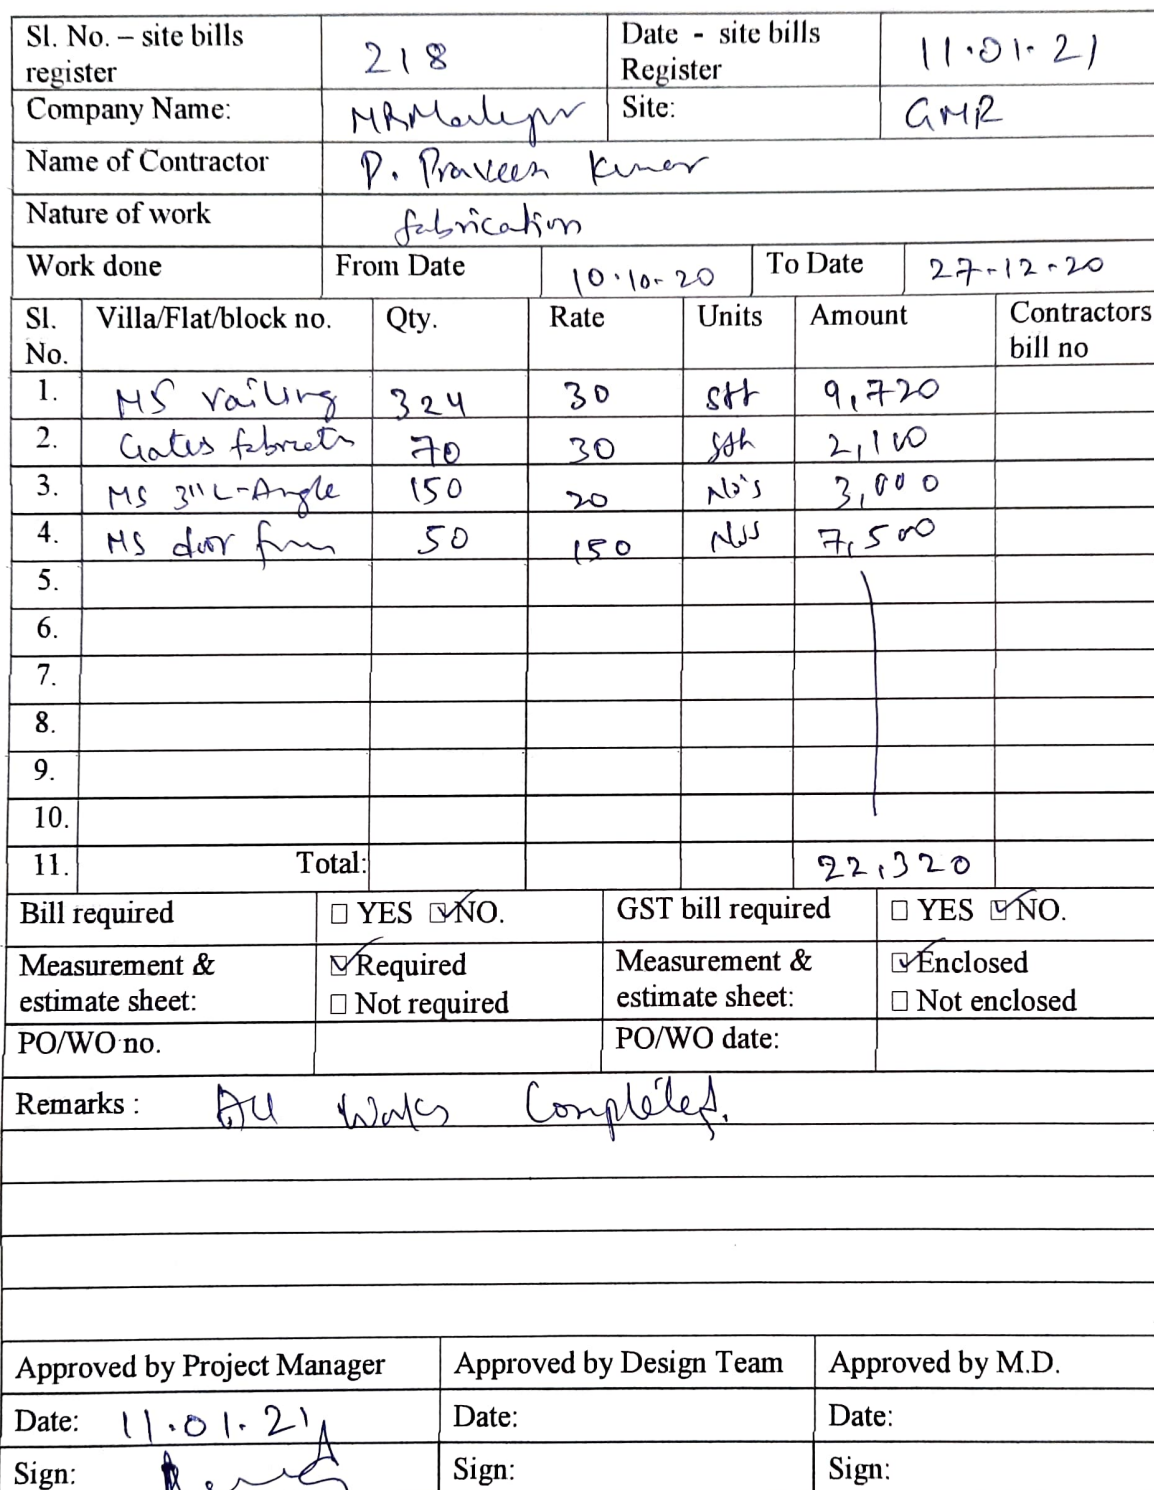 Sl. No. – site bills register 218 Date - site bills Register 11.01.21
Company Name: Site: GMR
Name of Contractor P. Praveen Kumar
Nature of work fabrication
Work done From Date 10.10.20 To Date 27-12-20
Sl. No. Villa/Flat/block no. Qty. Rate Units Amount Contractors bill no
1. MS railing 324 30 sft 9,720
2. Gates 70 30 sft 2,100
3. MS 3" L-Angle 150 20 No's 3,000
4. MS door 50 150 Nos 7,500
5.
6.
7.
8.
9.
10.
11. Total: 22,320
Bill required □ YES ☑ NO. GST bill required □ YES ☑ NO.
Measurement & estimate sheet: ☑ Required □ Not required Measurement & estimate sheet: ☑ Enclosed □ Not enclosed
PO/WO no. PO/WO date:
Remarks : All Works Completed.
Approved by Project Manager Approved by Design Team Approved by M.D.
Date: 11.01.21 Date: Date:
Sign: Sign: Sign: